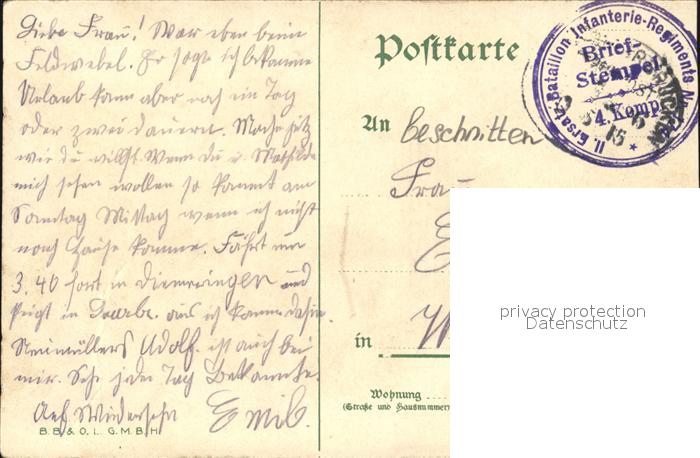 Liebe Frau! War eben beim
Feldwebel. Er sagte ich bekomme
Urlaub kann aber noch ein Tag
oder zwei dauern. Mache jetz
wie du willst. Wenn du u. Mathilde
mich sehen wollen so kommt am
Sonntag Mittag wenn ich nicht
nach Hause komme. Fährt um
3.40 fort in Diemeringen und
steigt in Saarbr. aus ich komme dahin
Neumüllers Adolf ist auch bei
mir. Sehe jeden Tag Bekannte.
Auf Wiedersehn Emil.
B.B. & O. L. G.M.B.H.
Postkarte
II. Ersatz-Bataillon Infanterie-Regiments
Brief-
Stempel
4. Komp.
15
An beschnitten
Frau
in W
Wohnung
(Straße und Hausnummer)
privacy protection
Datenschutz